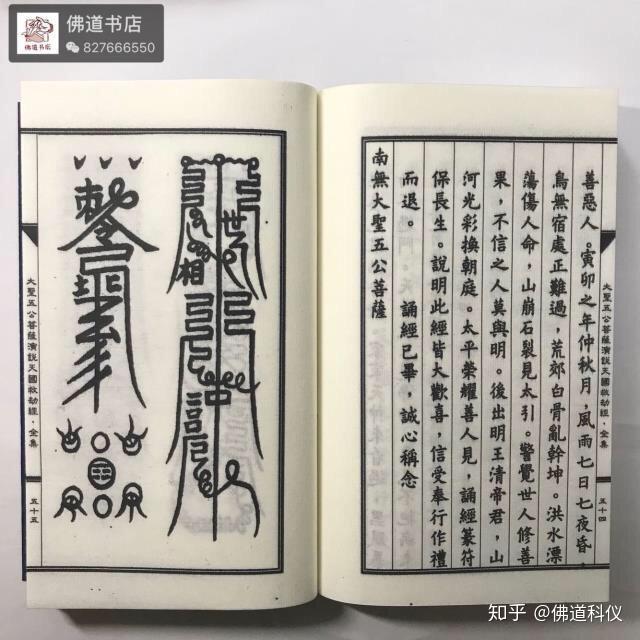 佛道书店
佛道书店
827666550
善惡人。寅卯之年仲秋月，風雨七日七夜昏，
鳥無宿處正難過，荒郊白骨亂幹坤。洪水漂
蕩傷人命，山崩石裂見太引。警覺世人修善
果，不信之人莫與明。後出明王清帝君，山
河光彩換朝庭。太平榮耀善人見，誦經篆符
保長生。說明此經皆大歡喜，信受奉行作禮
而退。　　誦經已畢，誠心稱念
南無大聖五公菩薩
大聖五公菩薩演說天國救劫經．全集
五十四
相
大聖五公菩薩演說天國救劫經．全集
五十五
知乎 @佛道科仪